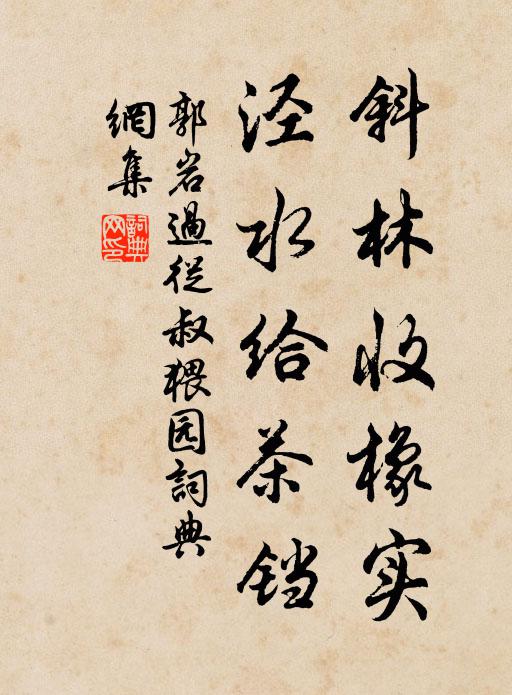 斜林收橡实
泾水给茶铛
郭岩過從叔猥园詞典
網集
詞典
网印